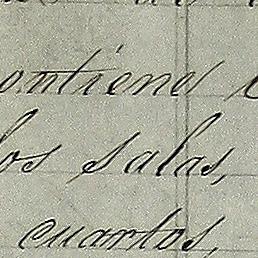 ontiene
los salas,
cuartos,